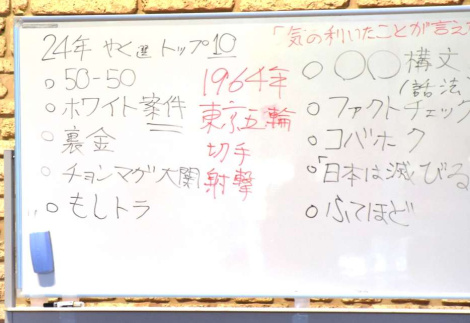 24年 やく選 トップ10
○ 50-50
○ ホワイト案件
○ 裏金
○ チョンマゲ大関
○ もしトラ
1964年
東京五輪
切手
射撃
「気の利いたことが言え
○ ○○構文
/話法
○ ファクトチェック
○ コバホーク
○ 「日本は滅びる
○ ふてほど